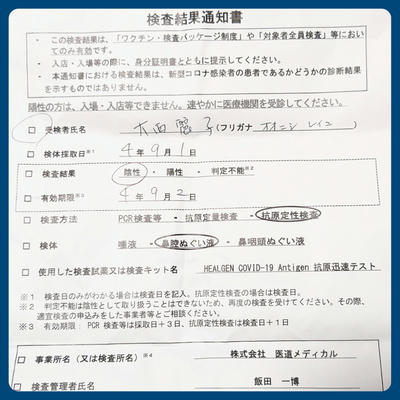 検査結果通知書
－ 検査結果は、「ワクチン・検査パッケージ制度」や「対象者全員検査」等において
のみ有効です。
－ 入店・入場等の際に、身分証明書とともに提示してください。
－ 本通知書における検査結果は、新型コロナ感染者の患者であるかどうかの診断結果
を示すものではありません。
陽性の方は、入場・入店等できません。速やかに医療機関を受診してください。
□ 受検者氏名 大西 麗子 (フリガナ オオニシ レイコ )
□ 検体採取日※1 4年 9月 1日
□ 検査結果 陰性 ・ 陽性 ・ 判定不能※2
□ 有効期限※3 4年 9月 2日
□ 検査方法 PCR検査等 ・ 抗原定量検査 ・ 抗原定性検査
□ 検体 唾液 ・ 鼻腔ぬぐい液 ・ 鼻咽頭ぬぐい液
□ 使用した検査試薬又は検査キット名 HEALGEN COVID-19 Antigen 抗原迅速テスト
※1 検査日のみがわかる場合は検査日を記入。抗原定性検査の場合は検査日。
※2 判定不能は陰性として取り扱うことはできないため、再度の検査を受けてください。その際、
適宜検査の申込みをした事業者等とご相談ください。
※3 有効期限： PCR 検査等は採取日＋3日、抗原定性検査は検査日＋1日
□ 事業所名（又は検査所名）※4 株式会社 医道メディカル
□ 検査管理者氏名 飯田 一博